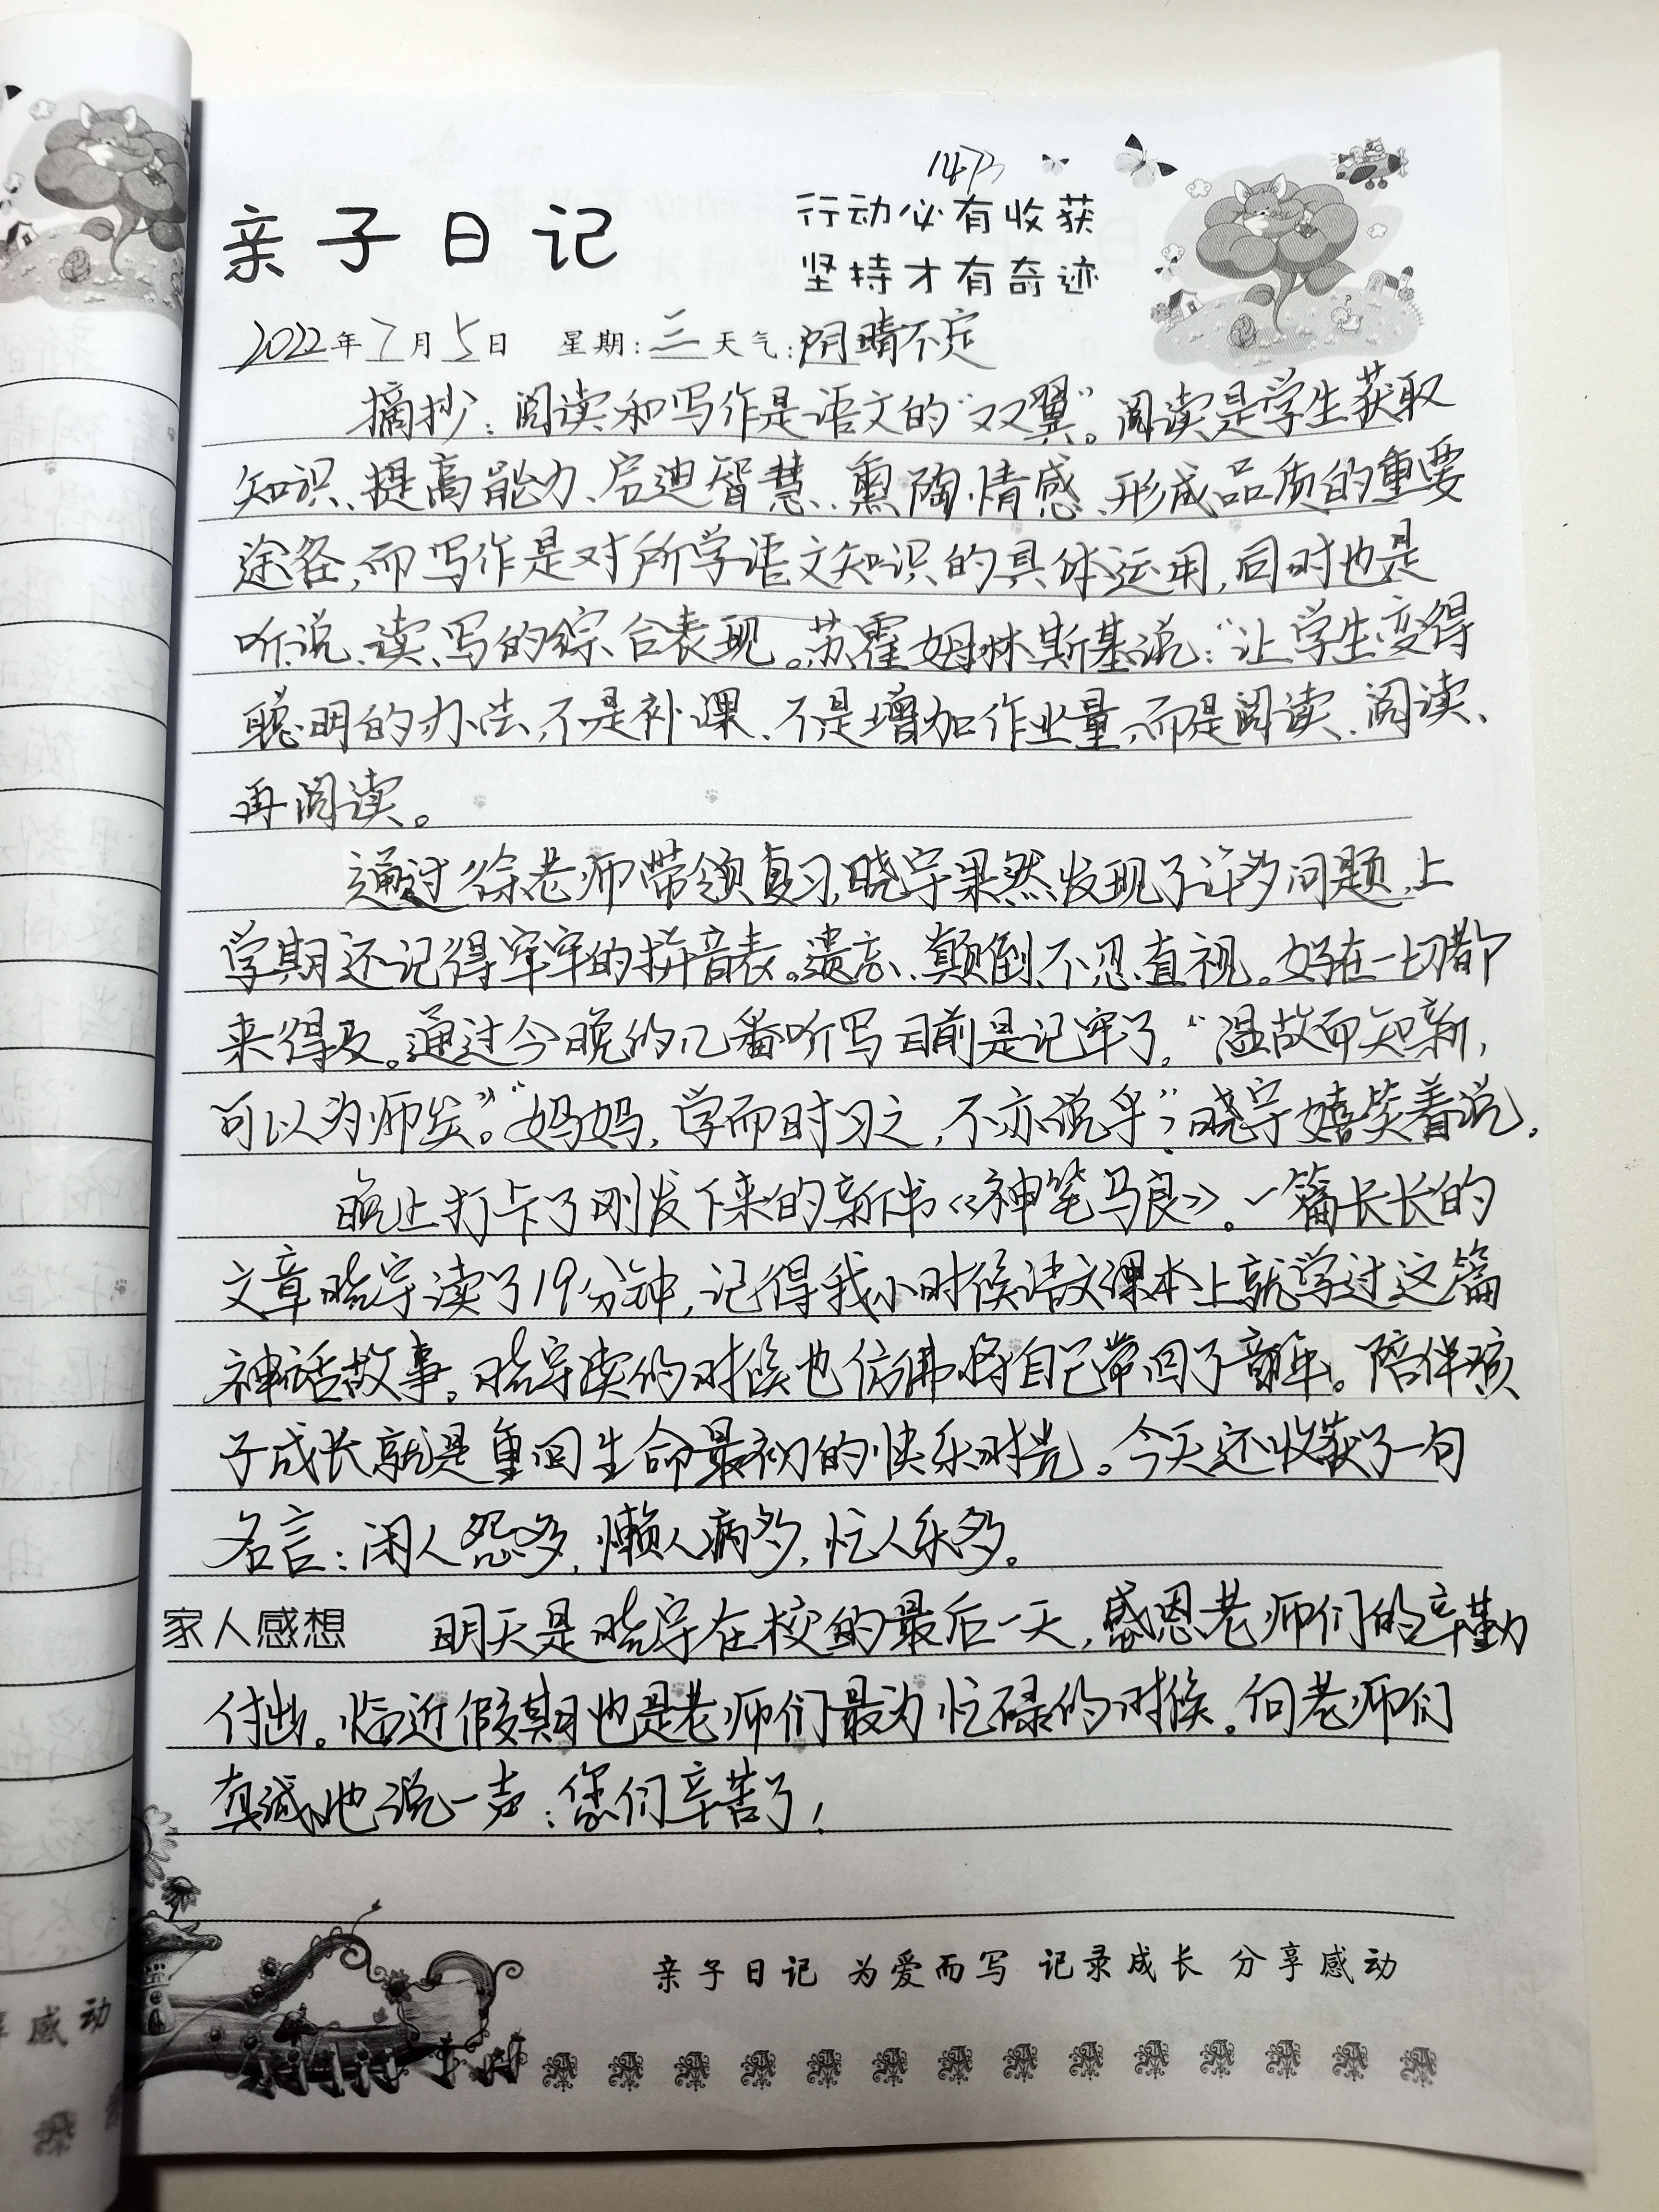 亲子日记
行动必有收获
坚持才有奇迹
2022年7月5日 星期:三 天气:阴晴不定
摘抄:阅读和写作是语文的“双翼”。阅读是学生获取
知识、提高能力、启迪智慧、熏陶情感、形成品质的重要
途径,而写作是对所学语文知识的具体运用,同时也是
听、说、读、写的综合表现。苏霍姆林斯基说:“让学生变得
聪明的办法,不是补课、不是增加作业量,而是阅读、阅读、
再阅读。
通过徐老师带领复习,晓宇果然发现了许多问题,上
学期还记得牢牢的拼音表。遗忘、颠倒、不忍直视。好在一切都
来得及。通过今晚的几番听写目前是记牢了。“温故而知新,
可以为师矣。”“妈妈,学而时习之,不亦说乎”,晓宇嬉笑着说。
晚上打卡了刚发下来的新书《神笔马良》。一篇长长的
文章晓宇读了19分钟,记得我小时候语文课本上就学过这篇
神话故事。晓宇读的时候也仿佛将自己带回了童年。陪伴孩
子成长就是重回生命最初的快乐时光。今天还收获了一句
名言:闲人愁多,懒人病多,忙人乐多。
家人感想 明天是晓宇在校的最后一天,感恩老师们的辛勤
付出。临近假期也是老师们最为忙碌的时候。向老师们
真诚地说一声:您们辛苦了!
亲子日记 为爱而写 记录成长 分享感动
享感动